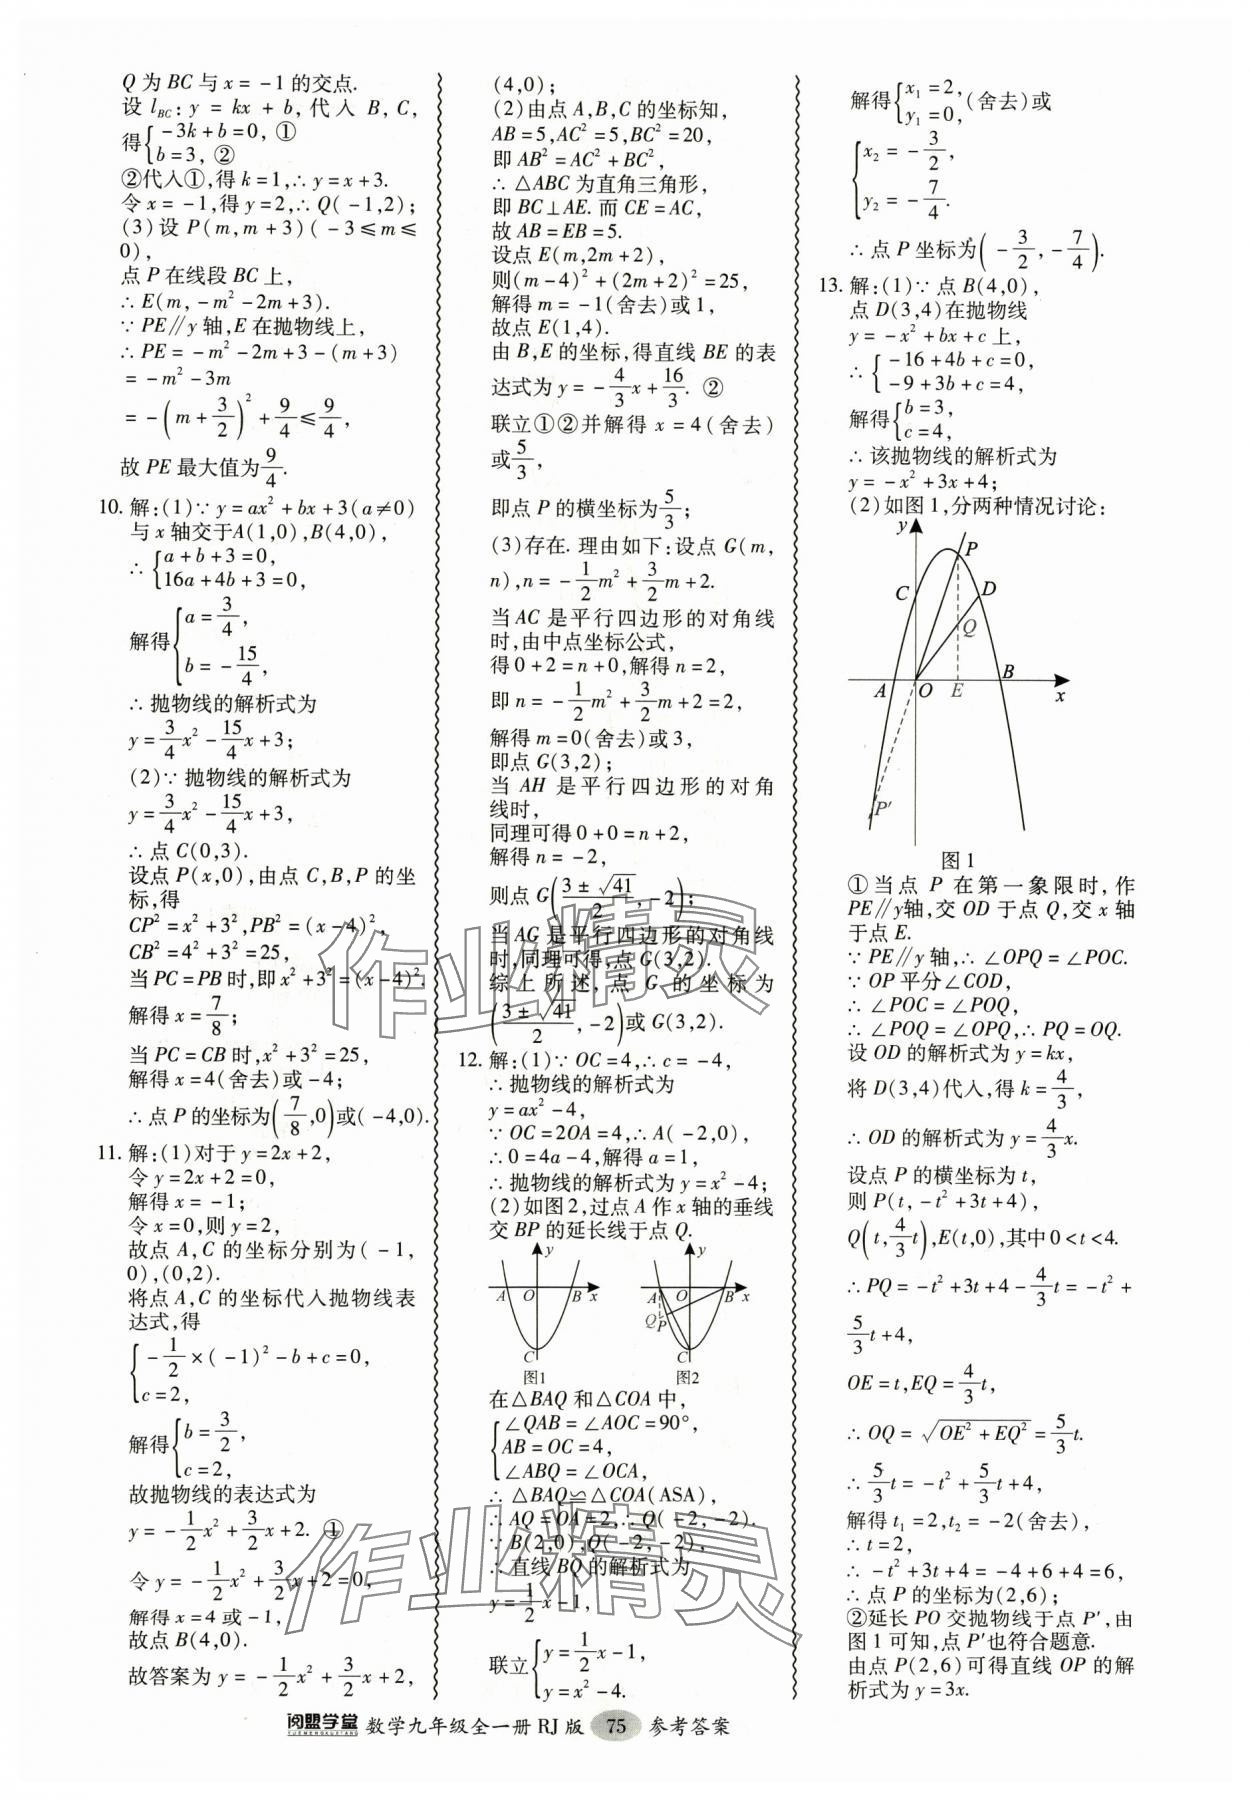 Q 为 BC 与 x = -1 的交点.
设 l_BC: y = kx + b, 代入 B, C,
得{-3k+b=0, ①
b=3, ②
②代入①,得 k=1,∴ y=x+3.
令 x = -1,得 y=2,∴ Q(-1,2);
(3)设 P(m,m+3)(-3≤m≤
0),
点 P 在线段 BC 上,
∴ E(m, -m²-2m+3).
∵ PE∥y 轴,E 在抛物线上,
∴ PE = -m²-2m+3-(m+3)
= -m²-3m
= -(m+3/2)²+9/4≤9/4,
故 PE 最大值为9/4.
10. 解:(1)∵ y=ax²+bx+3(a≠0)
与 x 轴交于A(1,0),B(4,0),
∴ {a+b+3=0,
16a+4b+3=0,
解得{a=3/4,
b=-15/4,
∴ 抛物线的解析式为
y=3/4x²-15/4x+3;
(2)∵ 抛物线的解析式为
y=3/4x²-15/4x+3,
∴ 点 C(0,3).
设点 P(x,0),由点 C,B,P 的坐
标,得
CP²=x²+3²,PB²=(x-4)²,
CB²=4²+3²=25,
当 PC=PB 时,即 x²+3²=(x-4)².
解得 x=7/8;
当 PC=CB 时,x²+3²=25,
解得 x=4(舍去)或-4;
∴ 点 P 的坐标为(7/8,0)或(-4,0).
11. 解:(1)对于 y=2x+2,
令 y=2x+2=0,
解得 x=-1;
令 x=0,则 y=2,
故点 A,C 的坐标分别为(-1,
0),(0,2).
将点 A,C 的坐标代入抛物线表
达式,得
{-1/2×(-1)²-b+c=0,
c=2,
解得{b=3/2,
c=2,
故抛物线的表达式为
y=-1/2x²+3/2x+2. ①
令 y=-1/2x²+3/2x+2=0,
解得 x=4 或-1,
故点 B(4,0).
故答案为 y=-1/2x²+3/2x+2,
(4,0);
(2)由点 A,B,C 的坐标知,
AB=5,AC²=5,BC²=20,
即 AB²=AC²+BC²,
∴ △ABC 为直角三角形,
即 BC⊥AE. 而 CE=AC,
故 AB=EB=5.
设点 E(m,2m+2),
则(m-4)²+(2m+2)²=25,
解得 m=-1(舍去)或 1,
故点 E(1,4).
由 B,E 的坐标,得直线 BE 的表
达式为 y=-4/3x+16/3. ②
联立①②并解得 x=4(舍去)
或5/3,
即点 P 的横坐标为5/3;
(3)存在. 理由如下:设点 G(m,
n),n=-1/2m²+3/2m+2.
当 AC 是平行四边形的对角线
时,由中点坐标公式,
得 0+2=n+0,解得 n=2,
即 n=-1/2m²+3/2m+2=2,
解得 m=0(舍去)或 3,
即点 G(3,2);
当 AH 是平行四边形的对角
线时,
同理可得 0+0=n+2,
解得 n=-2,
则点 G((3±√41)/2,-2);
当 AG 是平行四边形的对角线
时,同理可得,点 G(3,2).
综上所述,点 G 的坐标为
((3±√41)/2,-2)或 G(3,2).
12. 解:(1)∵ OC=4,∴ c=-4,
∴ 抛物线的解析式为
y=ax²-4,
∵ OC=2OA=4,∴ A(-2,0),
∴ 0=4a-4,解得 a=1,
∴ 抛物线的解析式为 y=x²-4;
(2)如图 2,过点 A 作 x 轴的垂线
交 BP 的延长线于点 Q.
y y
A O B x A O B x
Q P
C C
图1 图2
在△BAQ 和△COA 中,
{∠QAB=∠AOC=90°,
AB=OC=4,
∠ABQ=∠OCA,
∴ △BAQ≌△COA(ASA),
∴ AQ=OA=2,∴ Q(-2,-2).
∵ B(2,0),Q(-2,-2),
∴ 直线 BQ 的解析式为
y=1/2x-1,
联立{y=1/2x-1,
y=x²-4.
解得{x₁=2,
y₁=0,(舍去)或
{x₂=-3/2,
y₂=-7/4.
∴ 点 P 坐标为(-3/2,-7/4).
13. 解:(1)∵ 点 B(4,0),
点 D(3,4)在抛物线
y=-x²+bx+c 上,
∴ {-16+4b+c=0,
-9+3b+c=4,
解得{b=3,
c=4,
∴ 该抛物线的解析式为
y=-x²+3x+4;
(2)如图 1,分两种情况讨论:
y
P
C D
Q
A O E B
x
P'
图1
①当点 P 在第一象限时,作
PE∥y轴,交 OD 于点 Q,交 x 轴
于点 E.
∵ PE∥y 轴,∴ ∠OPQ=∠POC.
∵ OP 平分∠COD,
∴ ∠POC=∠POQ,
∴ ∠POQ=∠OPQ,∴ PQ=OQ.
设 OD 的解析式为 y=kx,
将 D(3,4)代入,得 k=4/3,
∴ OD 的解析式为 y=4/3x.
设点 P 的横坐标为 t,
则 P(t,-t²+3t+4),
Q(t,4/3t),E(t,0),其中 0<t<4.
∴ PQ=-t²+3t+4-4/3t=-t²+
5/3t+4,
OE=t,EQ=4/3t,
∴ OQ=√(OE²+EQ²)=5/3t.
∴ 5/3t=-t²+5/3t+4,
解得 t₁=2,t₂=-2(舍去),
∴ t=2,
∴ -t²+3t+4=-4+6+4=6,
∴ 点 P 的坐标为(2,6);
②延长 PO 交抛物线于点 P',由
图 1 可知,点 P'也符合题意.
由点 P(2,6)可得直线 OP 的解
析式为 y=3x.
阅盟学堂 YUEMENGXUETANG 数学九年级全一册 RJ 版 75 参考答案
作业精灵
作业精灵